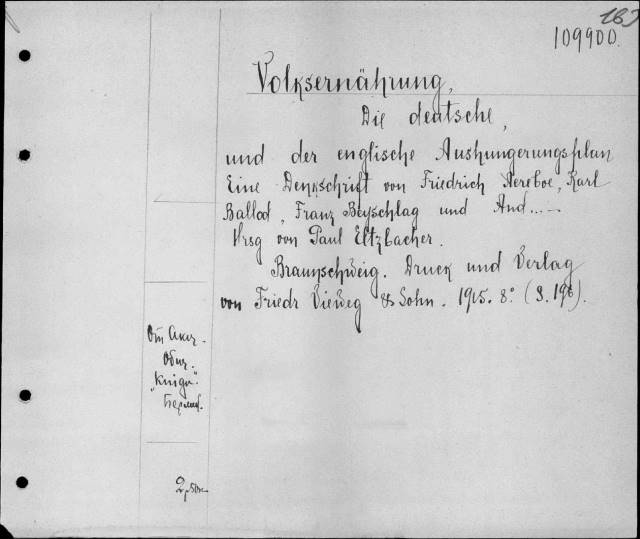 163
109900.
Volksernährung,
Die deutsche,
und der englische Aushungerungsplan
Eine Denkschrift von Friedrich Aereboe, Karl
Ballod, Franz Beyschlag und And...–
Hrsg von Paul Eltzbacher.
Braunschweig. Druck und Verlag
von Friedr Vieweg & Sohn. 1915. 8° (S. 196).
Отъ Акц.
Общ.
„Книга“.
2,50